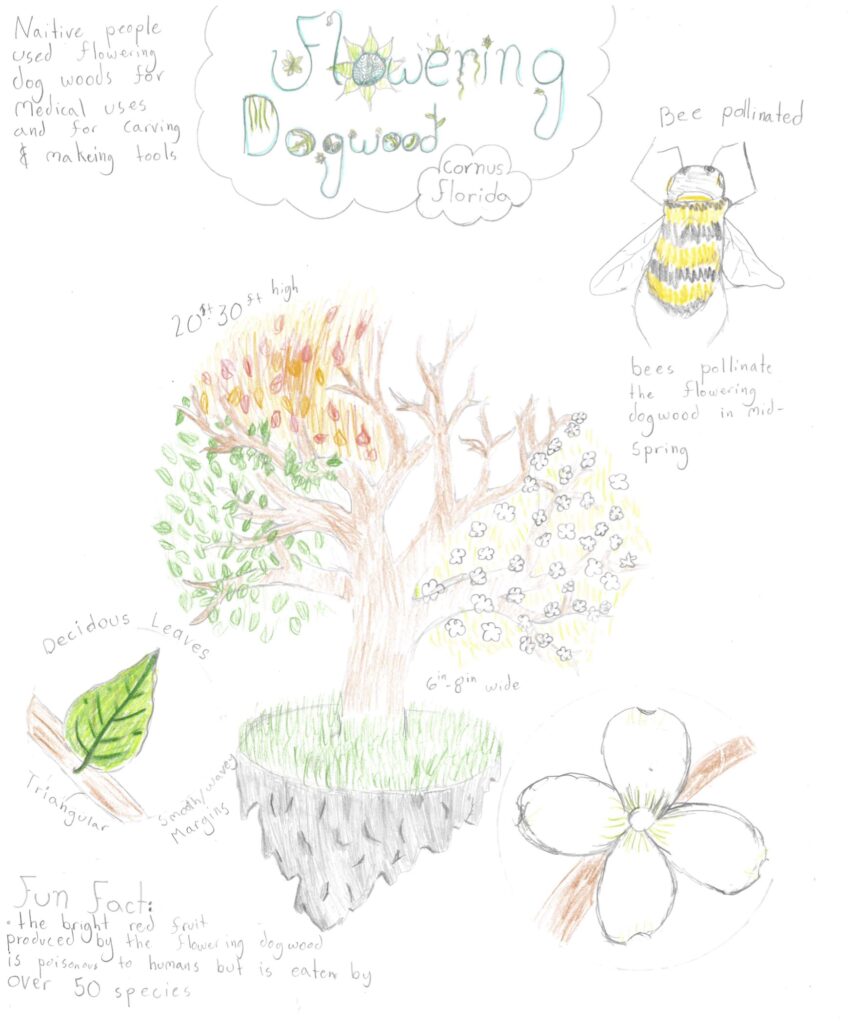 Naitive people
used flowering
dog woods for
Medical uses
and for carving
& makeing tools
Flowering
Dogwood
Cornus
florida
Bee pollinated
bees pollinate
the flowering
dogwood in mid-
Spring
20ft-30ft high
6in-8in wide
Decidous Leaves
Triangular
Smooth/wavey
Margins
Fun Fact:
• the bright red fruit
produced by the flowering dogwood
is poisonous to humans but is eaten by
over 50 species